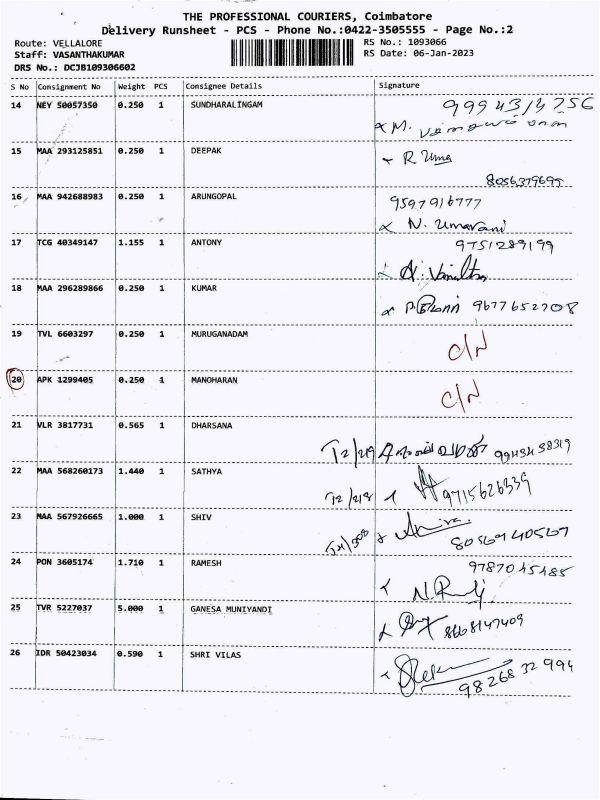 THE PROFESSIONAL COURIERS, Coimbatore
Delivery Runsheet - PCS - Phone No.:0422-3505555 - Page No.:2
Route: VELLALORE
RS No.: 1093066
Staff: VASANTHAKUMAR
RS Date: 06-Jan-2023
DRS No.: DCJB109306602
S No Consignment No Weight PCS Consignee Details Signature
14 NEY 50057350 0.250 1 SUNDHARALINGAM
M.
15 MAA 293125851 0.250 1 DEEPAK
R. Uma
8056379699
16 MAA 942688983 0.250 1 ARUNGOPAL
9597916777
N. Umarani
17 TCG 40349147 1.155 1 ANTONY 9751289199
18 MAA 296289866 0.250 1 KUMAR
9677652708
19 TVL 6603297 0.250 1 MURUGANADAM
C/N
20 APK 1299405 0.250 1 MANOHARAN
C/N
21 VLR 3817731 0.565 1 DHARSANA
T2/219
22 MAA 568260173 1.440 1 SATHYA
T2/218 9715626339
23 MAA 567926665 1.000 1 SHIV
24 PON 3605174 1.710 1 RAMESH
9787045485
25 TVR 5227037 5.000 1 GANESA MUNIYANDI
8608147409
26 IDR 50423034 0.590 1 SHRI VILAS
98268 32 994